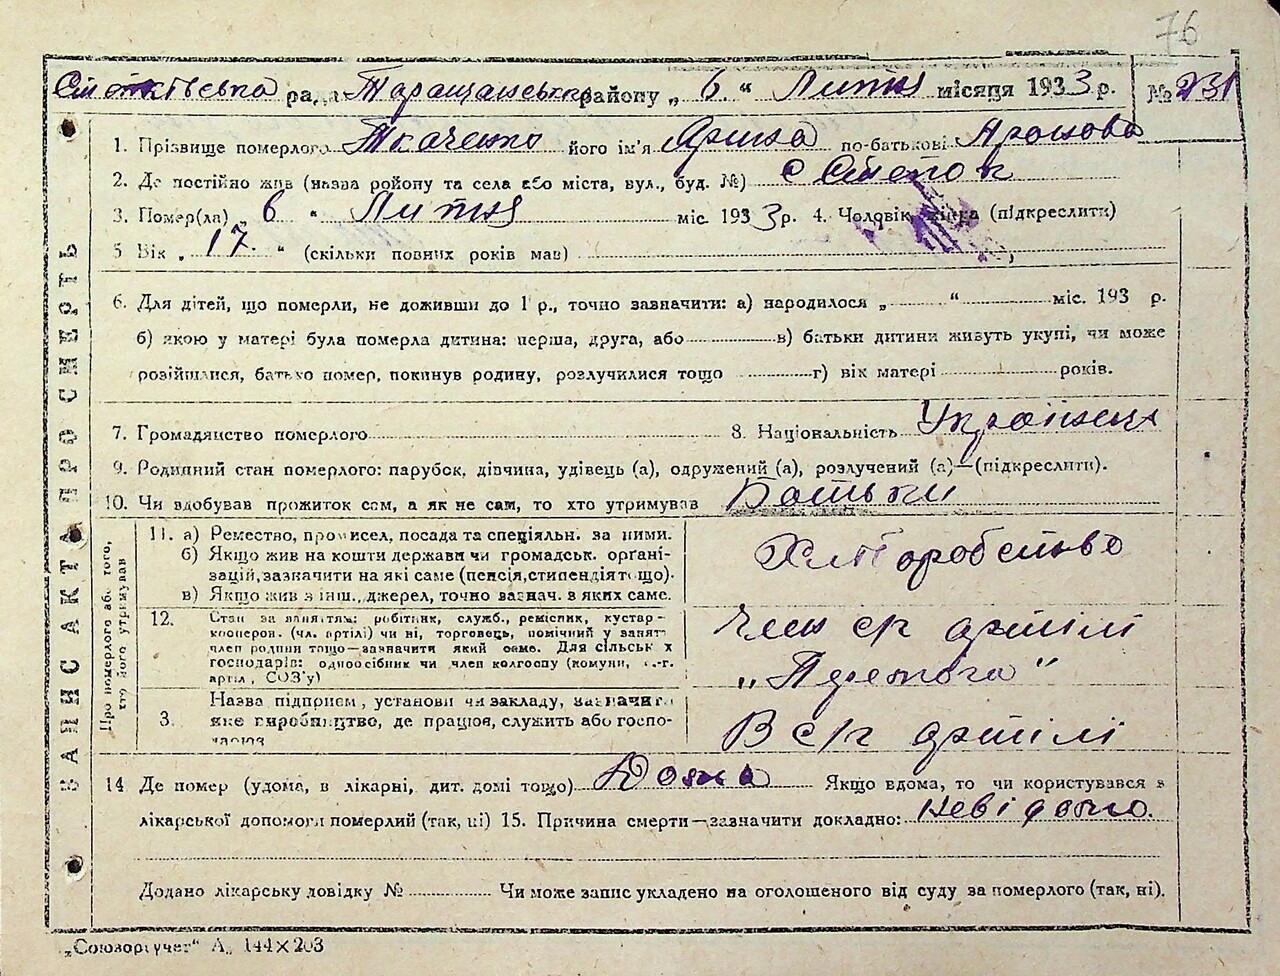 76
рада Таращанського району „ 6. “ Липня місяця 1933 р. № 231
1. Прізвище померлого Ткаченко його ім'я Ярина по-батькові
2. Де постійно жив (назва району та села або міста, вул., буд. №) с Степок
3. Помер(ла) „ 6 “ Липня міс. 1933 р. 4. Чоловік, жінка (підкреслити)
5 Вік „ 17. “ (скільки повних років мав)
6. Для дітей, що померли, не доживши до 1 р., точно зазначити: а) народилося „ “ міс. 193 р.
б) якою у матері була померла дитина: перша, друга, або в) батьки дитини живуть укупі, чи може
розійшлися, батько помер, покинув родину, розлучилися тощо г) вік матері років.
7. Громадянство померлого 8. Національність Українка
9. Родинний стан померлого: парубок, дівчина, удівець (а), одружений (а), розлучений (а)—(підкреслити).
10. Чи здобував прожиток сам, а як не сам, то хто утримував Батьки
ЗАПИС АКТА ПРО СМЕРТЬ
Про померлого або того,
хто його утримував
11. а) Ремество, промисел, посада та спеціяльн. за ними.
б) Якщо жив на кошти держави чи громадськ. органі-
зацій, зазначити на які саме (пенсія, стипендія тощо).
в) Якщо жив з інш. джерел, точно зазнач. з яких саме.
Хліборобство
12. Стан за заняттям: робітник, служб., ремісник, кустар-
кооперов. (чл. артілі) чи ні, торговець, помічний у занят.
член родини тощо—зазначити який саме. Для сільськ х
господарів: одноосібник чи член колгоспу (комуни, с.-г.
артіл., СОЗ'у)
Член с/г артілі
„Перемога“
3. Назва підприєм., установи чи закладу, зазначити
яке виробництво, де працює, служить або госпо-
дарює
В с/г артілі
14 Де помер (удома, в лікарні, дит. домі тощо) Дома Якщо вдома, то чи користувався з
лікарської допомоги померлий (так, ні) 15. Причина смерти—зазначити докладно: Невідомо.
Додано лікарську довідку № Чи може запис укладено на оголошеного від суду за померлого (так, ні).
„Союзоргучет“ А„ 144×203